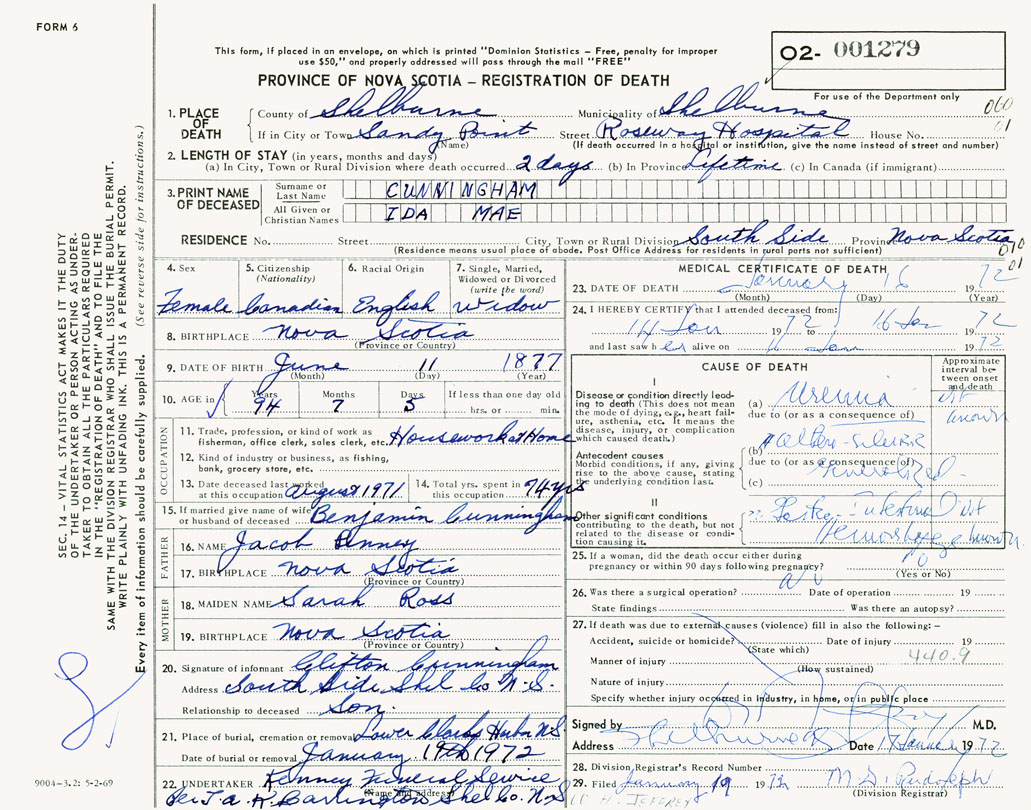 FORM 6
This form, if placed in an envelope, on which is printed "Dominion Statistics – Free, penalty for improper
use $50," and properly addressed will pass through the mail "FREE"
PROVINCE OF NOVA SCOTIA – REGISTRATION OF DEATH
02- 001279
For use of the Department only
060
01
1. PLACE OF DEATH
County of Shelburne Municipality of Shelburne
If in City or Town Sandy Point Street Roseway Hospital House No.
(Name) (If death occurred in a hospital or institution, give the name instead of street and number)
2. LENGTH OF STAY (in years, months and days)
(a) In City, Town or Rural Division where death occurred 2 days (b) In Province Lifetime (c) In Canada (if immigrant)
3. PRINT NAME OF DECEASED
Surname or Last Name CUNNINGHAM
All Given or Christian Names IDA MAE
RESIDENCE No. Street City, Town or Rural Division South Side Province Nova Scotia
(Residence means usual place of abode. Post Office Address for residents in rural parts not sufficient)
070
01
4. Sex 5. Citizenship (Nationality) 6. Racial Origin 7. Single, Married, Widowed or Divorced (write the word)
Female Canadian English Widow
8. BIRTHPLACE Nova Scotia
(Province or Country)
9. DATE OF BIRTH June 11 1877
(Month) (Day) (Year)
10. AGE in Years Months Days If less than one day old
94 7 5 hrs. or min.
OCCUPATION
11. Trade, profession, or kind of work as
fisherman, office clerk, sales clerk, etc. Housework at Home
12. Kind of industry or business, as fishing,
bank, grocery store, etc.
13. Date deceased last worked
at this occupation August 1971
14. Total yrs. spent in
this occupation 74 yrs
15. If married give name of wife
or husband of deceased Benjamin Cunningham
FATHER
16. NAME Jacob Penney
17. BIRTHPLACE Nova Scotia
(Province or Country)
MOTHER
18. MAIDEN NAME Sarah Ross
19. BIRTHPLACE Nova Scotia
(Province or Country)
20. Signature of informant Clifton Cunningham
Address South Side Shel Co N.S.
Relationship to deceased Son.
21. Place of burial, cremation or removal Lower Clarks Harbor N.S.
Date of burial or removal January 19th 1972
22. UNDERTAKER Kenney Funeral Service
(Name and address)
Barrington Shel Co. N.S.
MEDICAL CERTIFICATE OF DEATH
23. DATE OF DEATH January 16 1972
(Month) (Day) (Year)
24. I HEREBY CERTIFY that I attended deceased from:
14 Jan 1972 to 16 Jan 1972
and last saw her alive on 16 Jan 1972
CAUSE OF DEATH
Approximate interval between onset and death
I
Disease or condition directly leading to death (This does not mean
the mode of dying, e.g., heart failure, asthenia, etc. It means the
disease, injury, or complication
which caused death.)
(a) Uremia not known
due to (or as a consequence of)
Antecedent causes
Morbid conditions, if any, giving
rise to the above cause, stating
the underlying condition last.
(b)
due to (or as a consequence of)
Generalized
(c)
II
Other significant conditions
contributing to the death, but not
related to the disease or condition causing it.
Gastro-Intestinal Hemorrhage not known
25. If a woman, did the death occur either during
pregnancy or within 90 days following pregnancy? No
(Yes or No)
26. Was there a surgical operation? No Date of operation 19
State findings Was there an autopsy?
27. If death was due to external causes (violence) fill in also the following: –
Accident, suicide or homicide? Date of injury 19
(State which)
440.9
Manner of injury
(How sustained)
Nature of injury
Specify whether injury occurred in industry, in home, or in public place
Signed by M.D.
Address Shelburne Date 1972
28. Division Registrar's Record Number
29. Filed January 19 1972 M. D. Rudolph
(Division Registrar)
H. JEFFREY
SEC. 14 – VITAL STATISTICS ACT MAKES IT THE DUTY
OF THE UNDERTAKER OR PERSON ACTING AS UNDER-
TAKER TO OBTAIN ALL THE PARTICULARS REQUIRED
IN THE "REGISTRATION OF DEATH" AND TO FILE THE
SAME WITH THE DIVISION REGISTRAR WHO SHALL ISSUE THE BURIAL PERMIT.
WRITE PLAINLY WITH UNFADING INK. THIS IS A PERMANENT RECORD.
Every item of information should be carefully supplied. (See reverse side for instructions.)
9004–3.2: 5-2-69